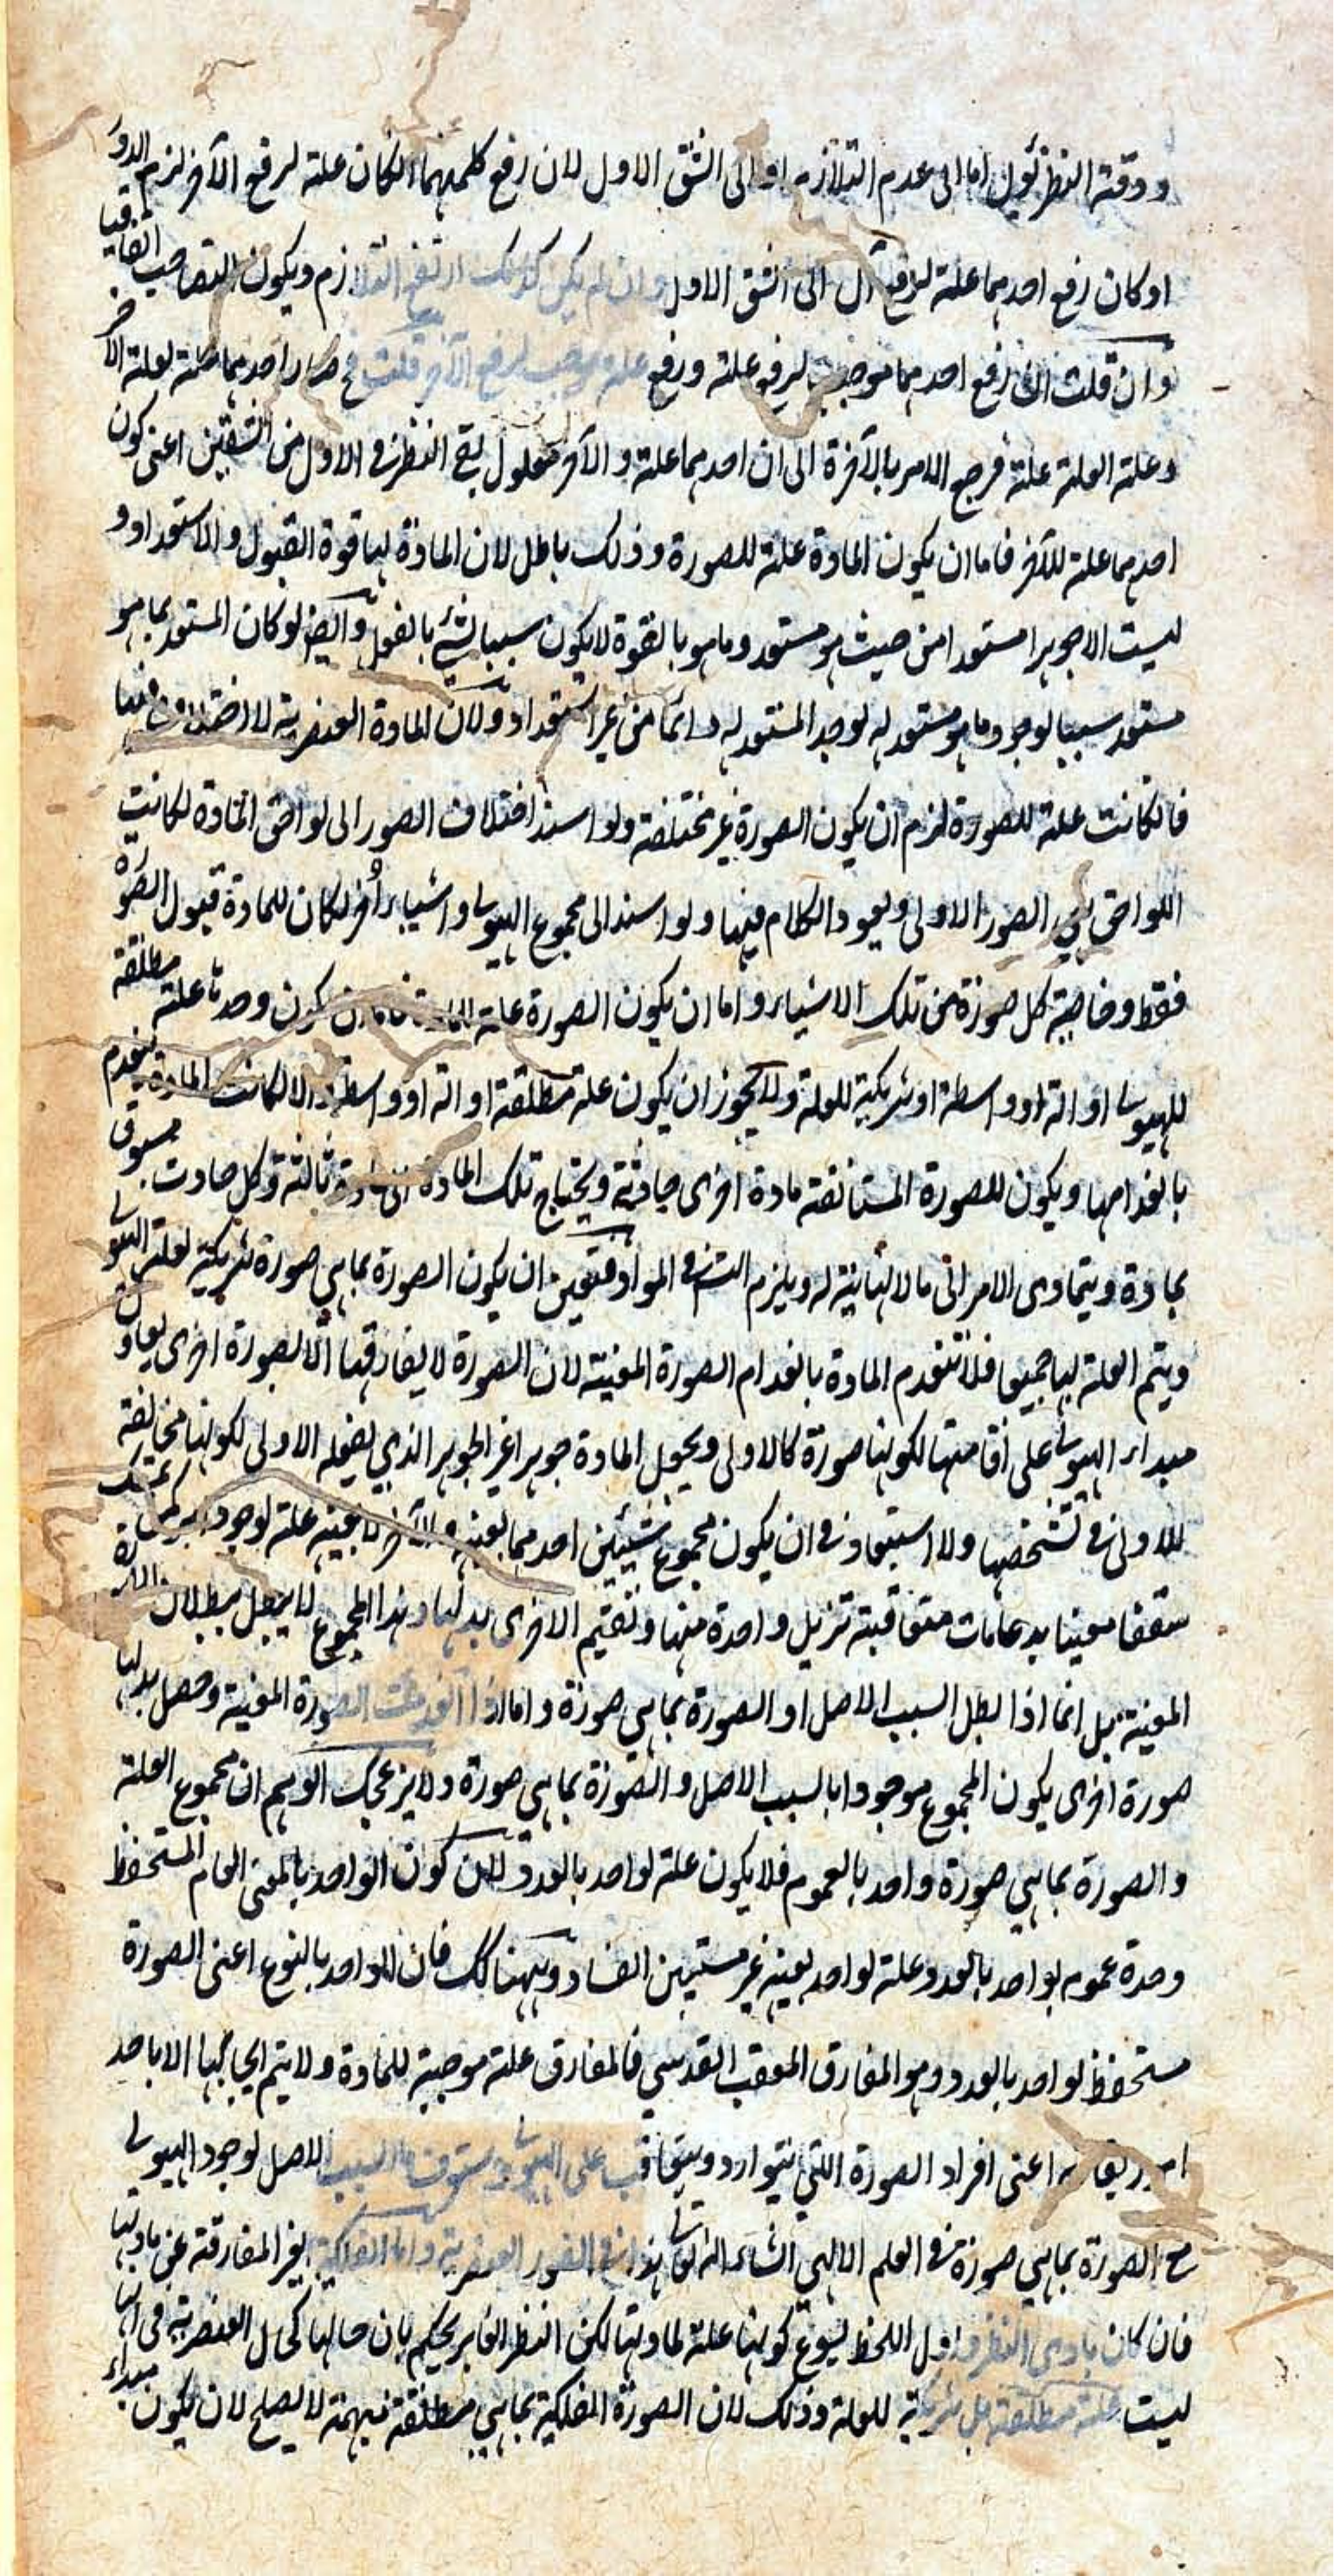 ودقة النظر يؤل اما الى عدم التلازم او الى الشق الاول لان رفع كلمنهما ان كان علة لرفع الآخر لزم الدور
او كان رفع احدهما علة لرفع آل الى الشق الاول وان لم يكن كذلك ارتفع التلازم ويكون التصاحب اتفاقيا
وان قلت ان رفع احدهما موجب لرفع علته ورفع علته موجب لرفع الآخر قلت فح صار احدهما علة لعلة الآخر
وعلة العلة علة فرجع الامر بالآخرة الى ان احدهما علة والآخر معلول بقي النظر في الاول من الشقين اعنى كون
احدهما علة للآخر فاما ان يكون المادة علة للصورة وذلك باطل لان المادة لها قوة القبول والاستعداد و
ليست الا جوهرا مستعدا من حيث هو مستعد وما هو بالقوة لا يكون سببا لشئ بالفعل وايضا لو كان المستعد بما هو
مستعد سببا لوجود ما هو مستعد له لوجد المستعد له دائما من غير استعداد ولان المادة العنصرية لا اختلاف فيها
فان كانت علة للصورة لزم ان يكون الصورة غير مختلفة ولو اسند اختلاف الصور الى لواحق المادة لكانت
اللواحق هي الصور الاولى ويعود الكلام فيها ولو اسند الى مجموع الهيولى واشياء أخر لكان للمادة قبول الصورة
فقط وخاصية كل صورة من تلك الاشياء واما ان يكون الصورة علة للمادة فاما ان يكون وحدها علة مطلقة
للهيولى او الة او واسطة او شريكة للعلة ولا يجوز ان يكون علة مطلقة او الة او واسطة والا لكانت المادة ينعدم
بانعدامها ويكون للصورة المستأنفة مادة اخرى حادثة ويحتاج تلك المادة الى مادة ثالثة وكل حادث مسبوق
بمادة ويتمادى الامر الى ما لا نهاية له ويلزم التس في المواد فتعين ان يكون الصورة بما هي صورة شريكة لعلة الهيولى
ويتم العلة بها جميعا فلا تنعدم المادة بانعدام الصورة المعينة لان الصورة لا يفارقها الا لصورة اخرى يعاون
مبداء الهيولى على اقامتها لكونها صورة كالاولى ويجعل المادة جوهرا غير الجوهر الذي يفعله الاولى لكونها مخالفة
للاولى في تشخصها ولا استبعاد في ان يكون مجموع شيئين احدهما بعينه والآخر لا بعينه علة لوجود امر كمن يمسك
سقفا معينا بدعامات متعاقبة تزيل واحدة منها وتقيم الاخرى بدلها وهذا المجموع لا يبطل ببطلان الصورة
المعينة بل انما اذا بطل السبب الاصل او الصورة بما هي صورة واما اذا انعدمت الصورة المعينة وحصل بدلها
صورة اخرى يكون المجموع موجودا بالسبب الاصل والصورة بما هي صورة ولا يزعجك الوهم ان مجموع العلة
والصورة بما هي صورة واحد بالعموم فلا يكون علة لواحد بالعدد لان كون الواحد بالمعنى العام المستحفظ
وحدة عمومه بواحد بالعدد علة لواحد بعينه غير مستبين الفساد وههنا كك فان الواحد بالنوع اعنى الصورة
مستحفظ لواحد بالعدد وهو المفارق المعقب القدسي فالمفارق علة موجبة للمادة ولا يتم ايجابها الا باحد
امور يقارنه اعنى افراد الصورة التي يتوارد ويتعاقب على الهيولى فالسبب الاصل لوجود الهيولى
مع الصورة بما هي صورة في العلم الالهي انشاء الله تعالى هذا في الصور العنصرية واما الفلكية الغير المفارقة عن مادتها
فان كان بادى النظر في اول اللحظ يسوغ كونها علة لمادتها لكن النظر الغابر يحكم بان حالها كحال العنصرية في انها
ليست علة مطلقة بل شريكة للعلة وذلك لان الصورة الفلكية بما هي مطلقة مبهمة لا يصلح لان يكون مبداء